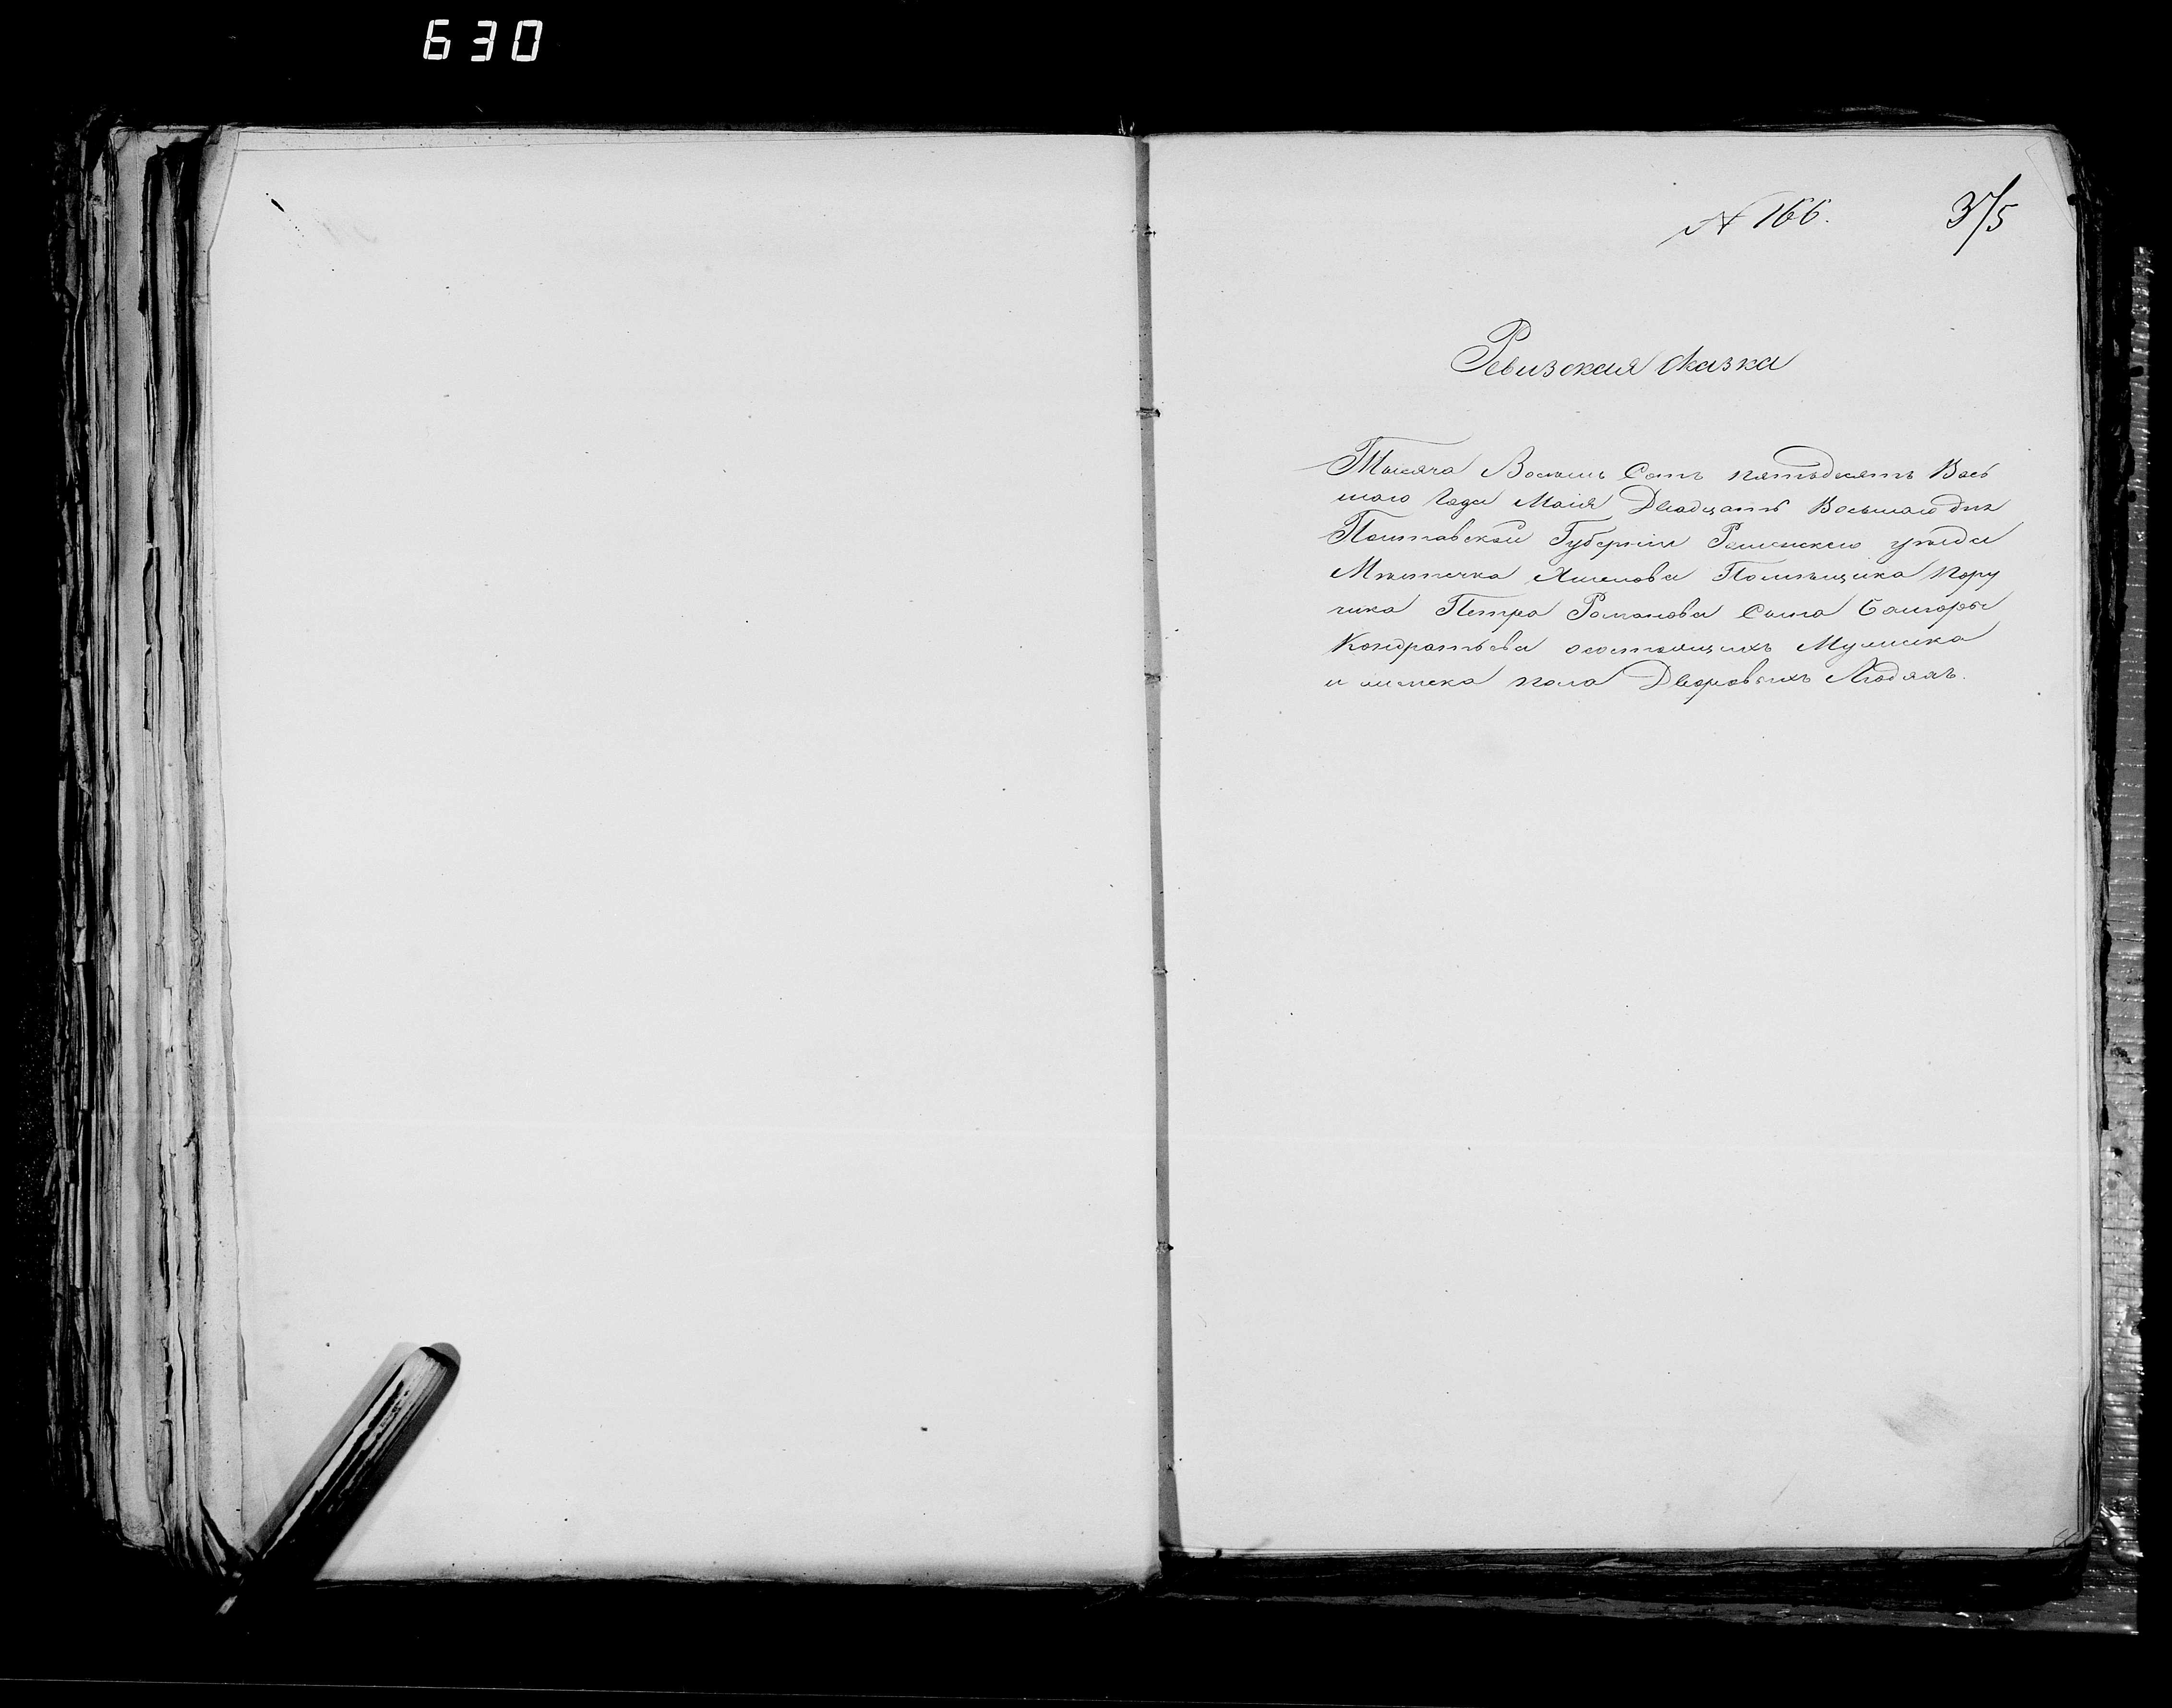 630
№ 166.
375
Ревизская сказка
Тысяча Восемь Сотъ пятьдесятъ Вось
маго Года Маія Двадцать Восьмаго дня
Полтавской Губерніи Роменскаго уезда
Местечка Хмелова Помѣщика Пору
чика Петра Романова Сына
Кондратьева о состоящихъ Мужеска
и женска пола Дворовыхъ Людяхъ.